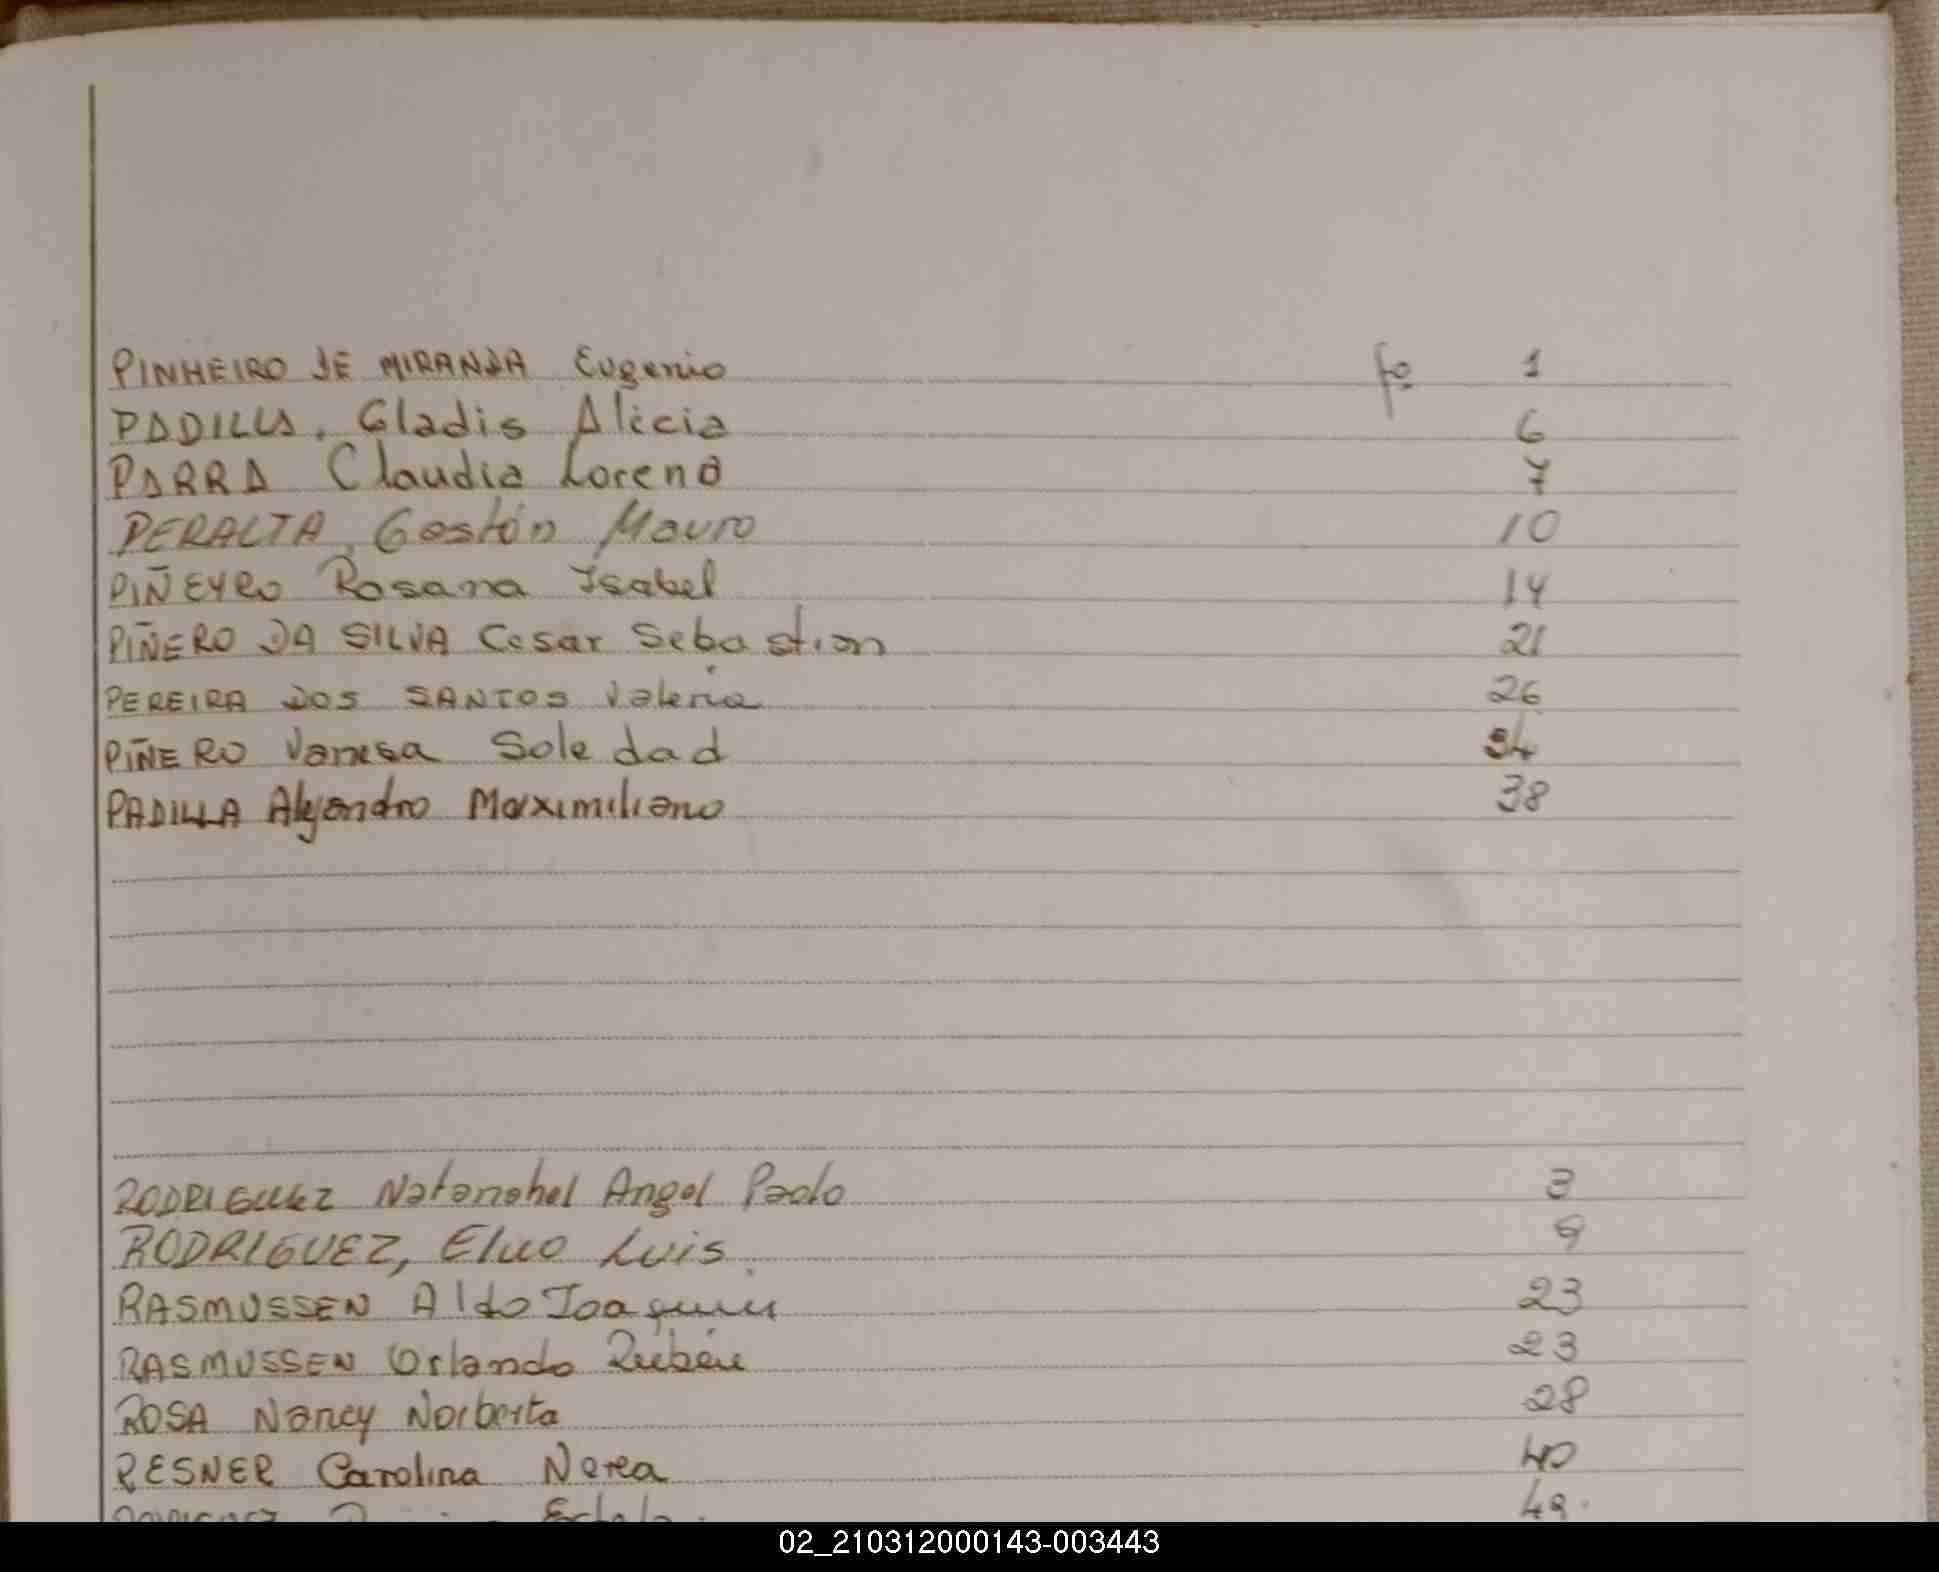 PINHEIRO DE MIRANDA Eugenio fo 1
PADILLA, Gladis Alicia 6
PARRA Claudia Lorena 7
PERALTA, Gastón Mauro 10
PIÑEYRO Rosana Isabel 14
PIÑERO DA SILVA Cesar Sebastian 21
PEREIRA DOS SANTOS Valeria 26
PIÑERO Vanesa Soledad 34
PADILLA Alejandro Maximiliano 38
RODRIGUEZ Natanahel Angel Paolo 3
RODRIGUEZ, Luis 9
RASMUSSEN Aldo Joaquin 23
RASMUSSEN Orlando Rubén 23
ROSA Nancy Norberta 28
RESNER Carolina Nerea 40
02_210312000143-003443